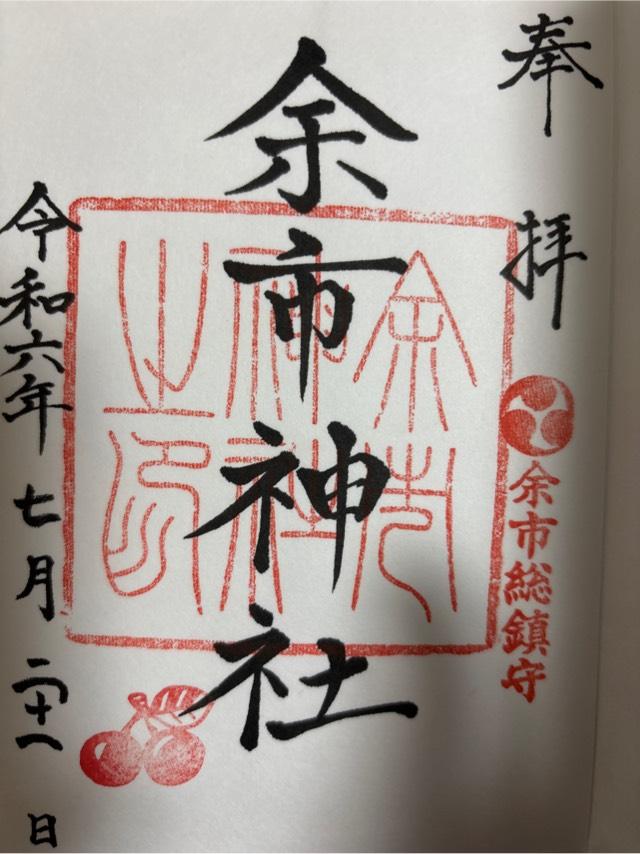 奉拝
余市総鎮守
余市神社
余市神社之印
令和六年七月二十一日